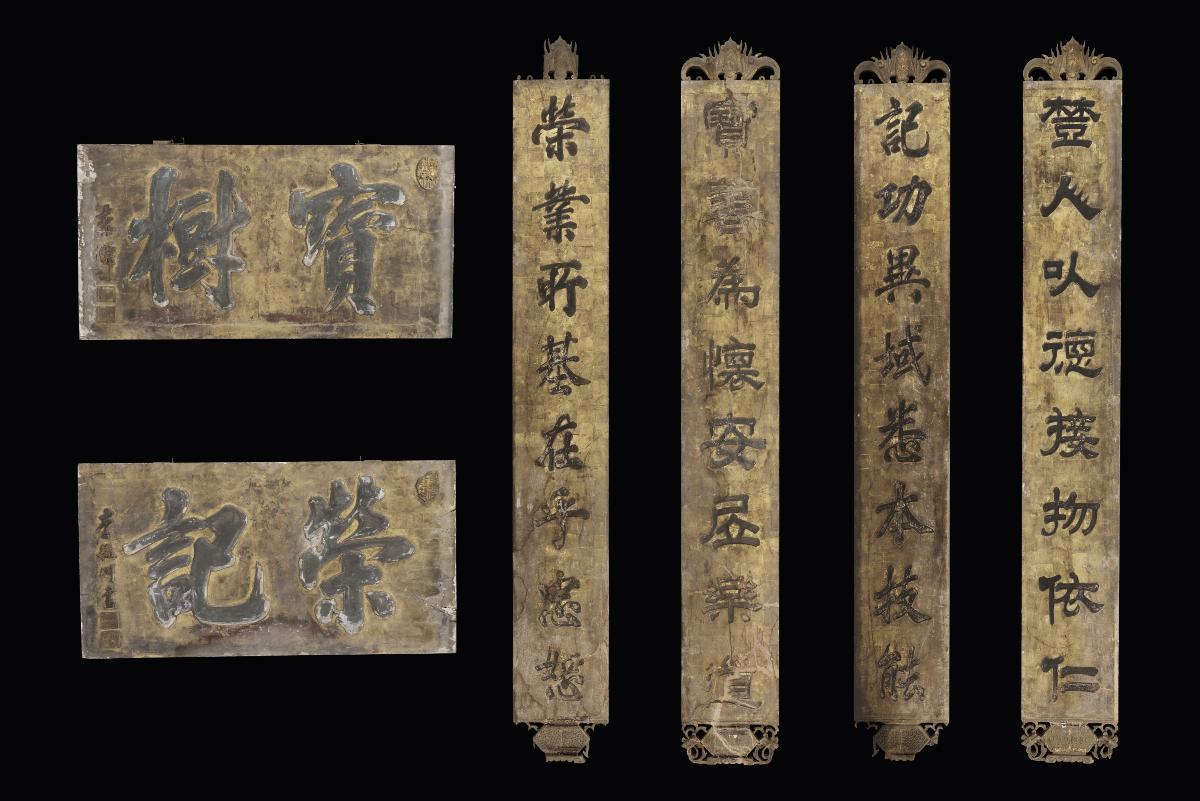 寶樹
榮記
榮業所基在乎忠恕
寶善為懷安居樂道
記功異域悉本技能
樹人以德接物依仁